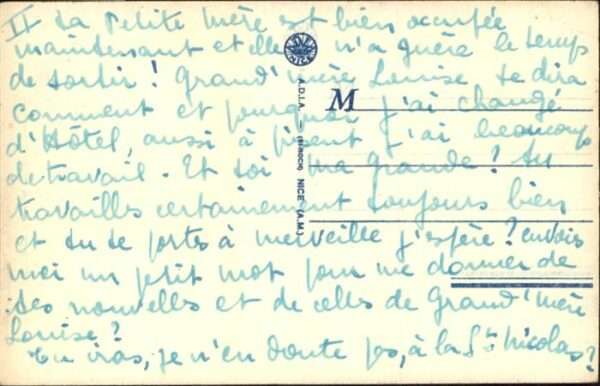 II Ta Petite mère est bien occupée
maintenant et elle n'a guère le temps
de sortir ! Grand'mère Louise te dira
comment et pourquoi j'ai changé
d'Hôtel, aussi à présent j'ai beaucoup
de travail. Et toi ma grande ? tu
travailles certainement toujours bien
et tu te portes à merveille j'espère ? envois
moi un petit mot pour me donner de
tes nouvelles et de celles de Grand'mère
Louise ?
Tu iras, je n'en doute pas, à la St Nicolas ?
M
A.D.I.A. — NICE (A.M.)